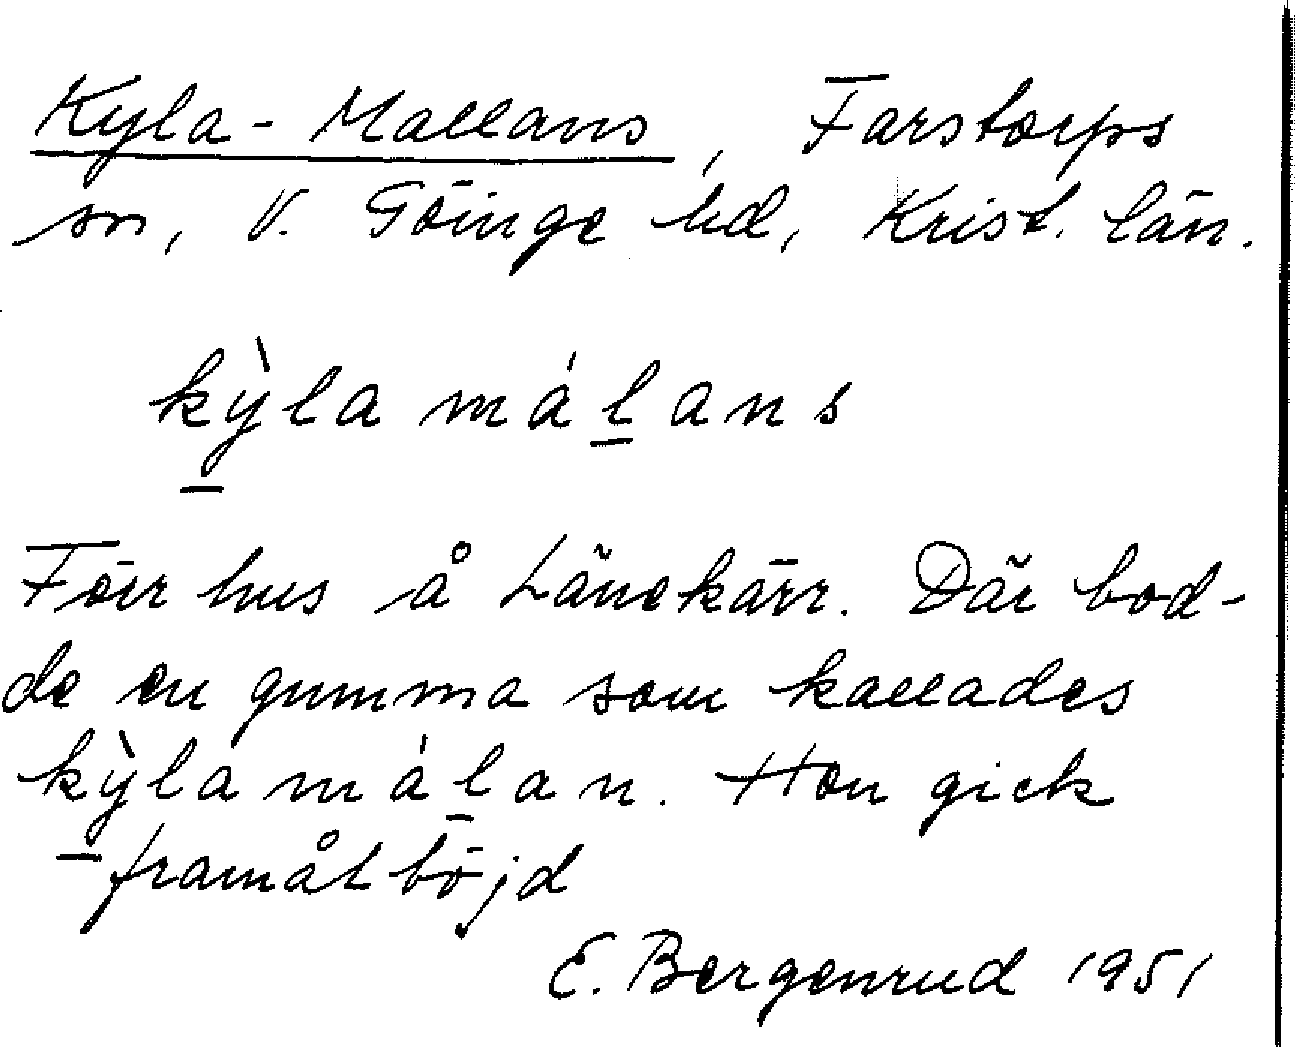 Kyla-Mallans, Farstorps
sn, V. Göinge hd, Krist. län.
kỳla málans
Förr hus å Länekärr. Där bod-
de en gumma som kallades
kỳla málan. Hon gick
framåtböjd
E. Bergenrud 1951